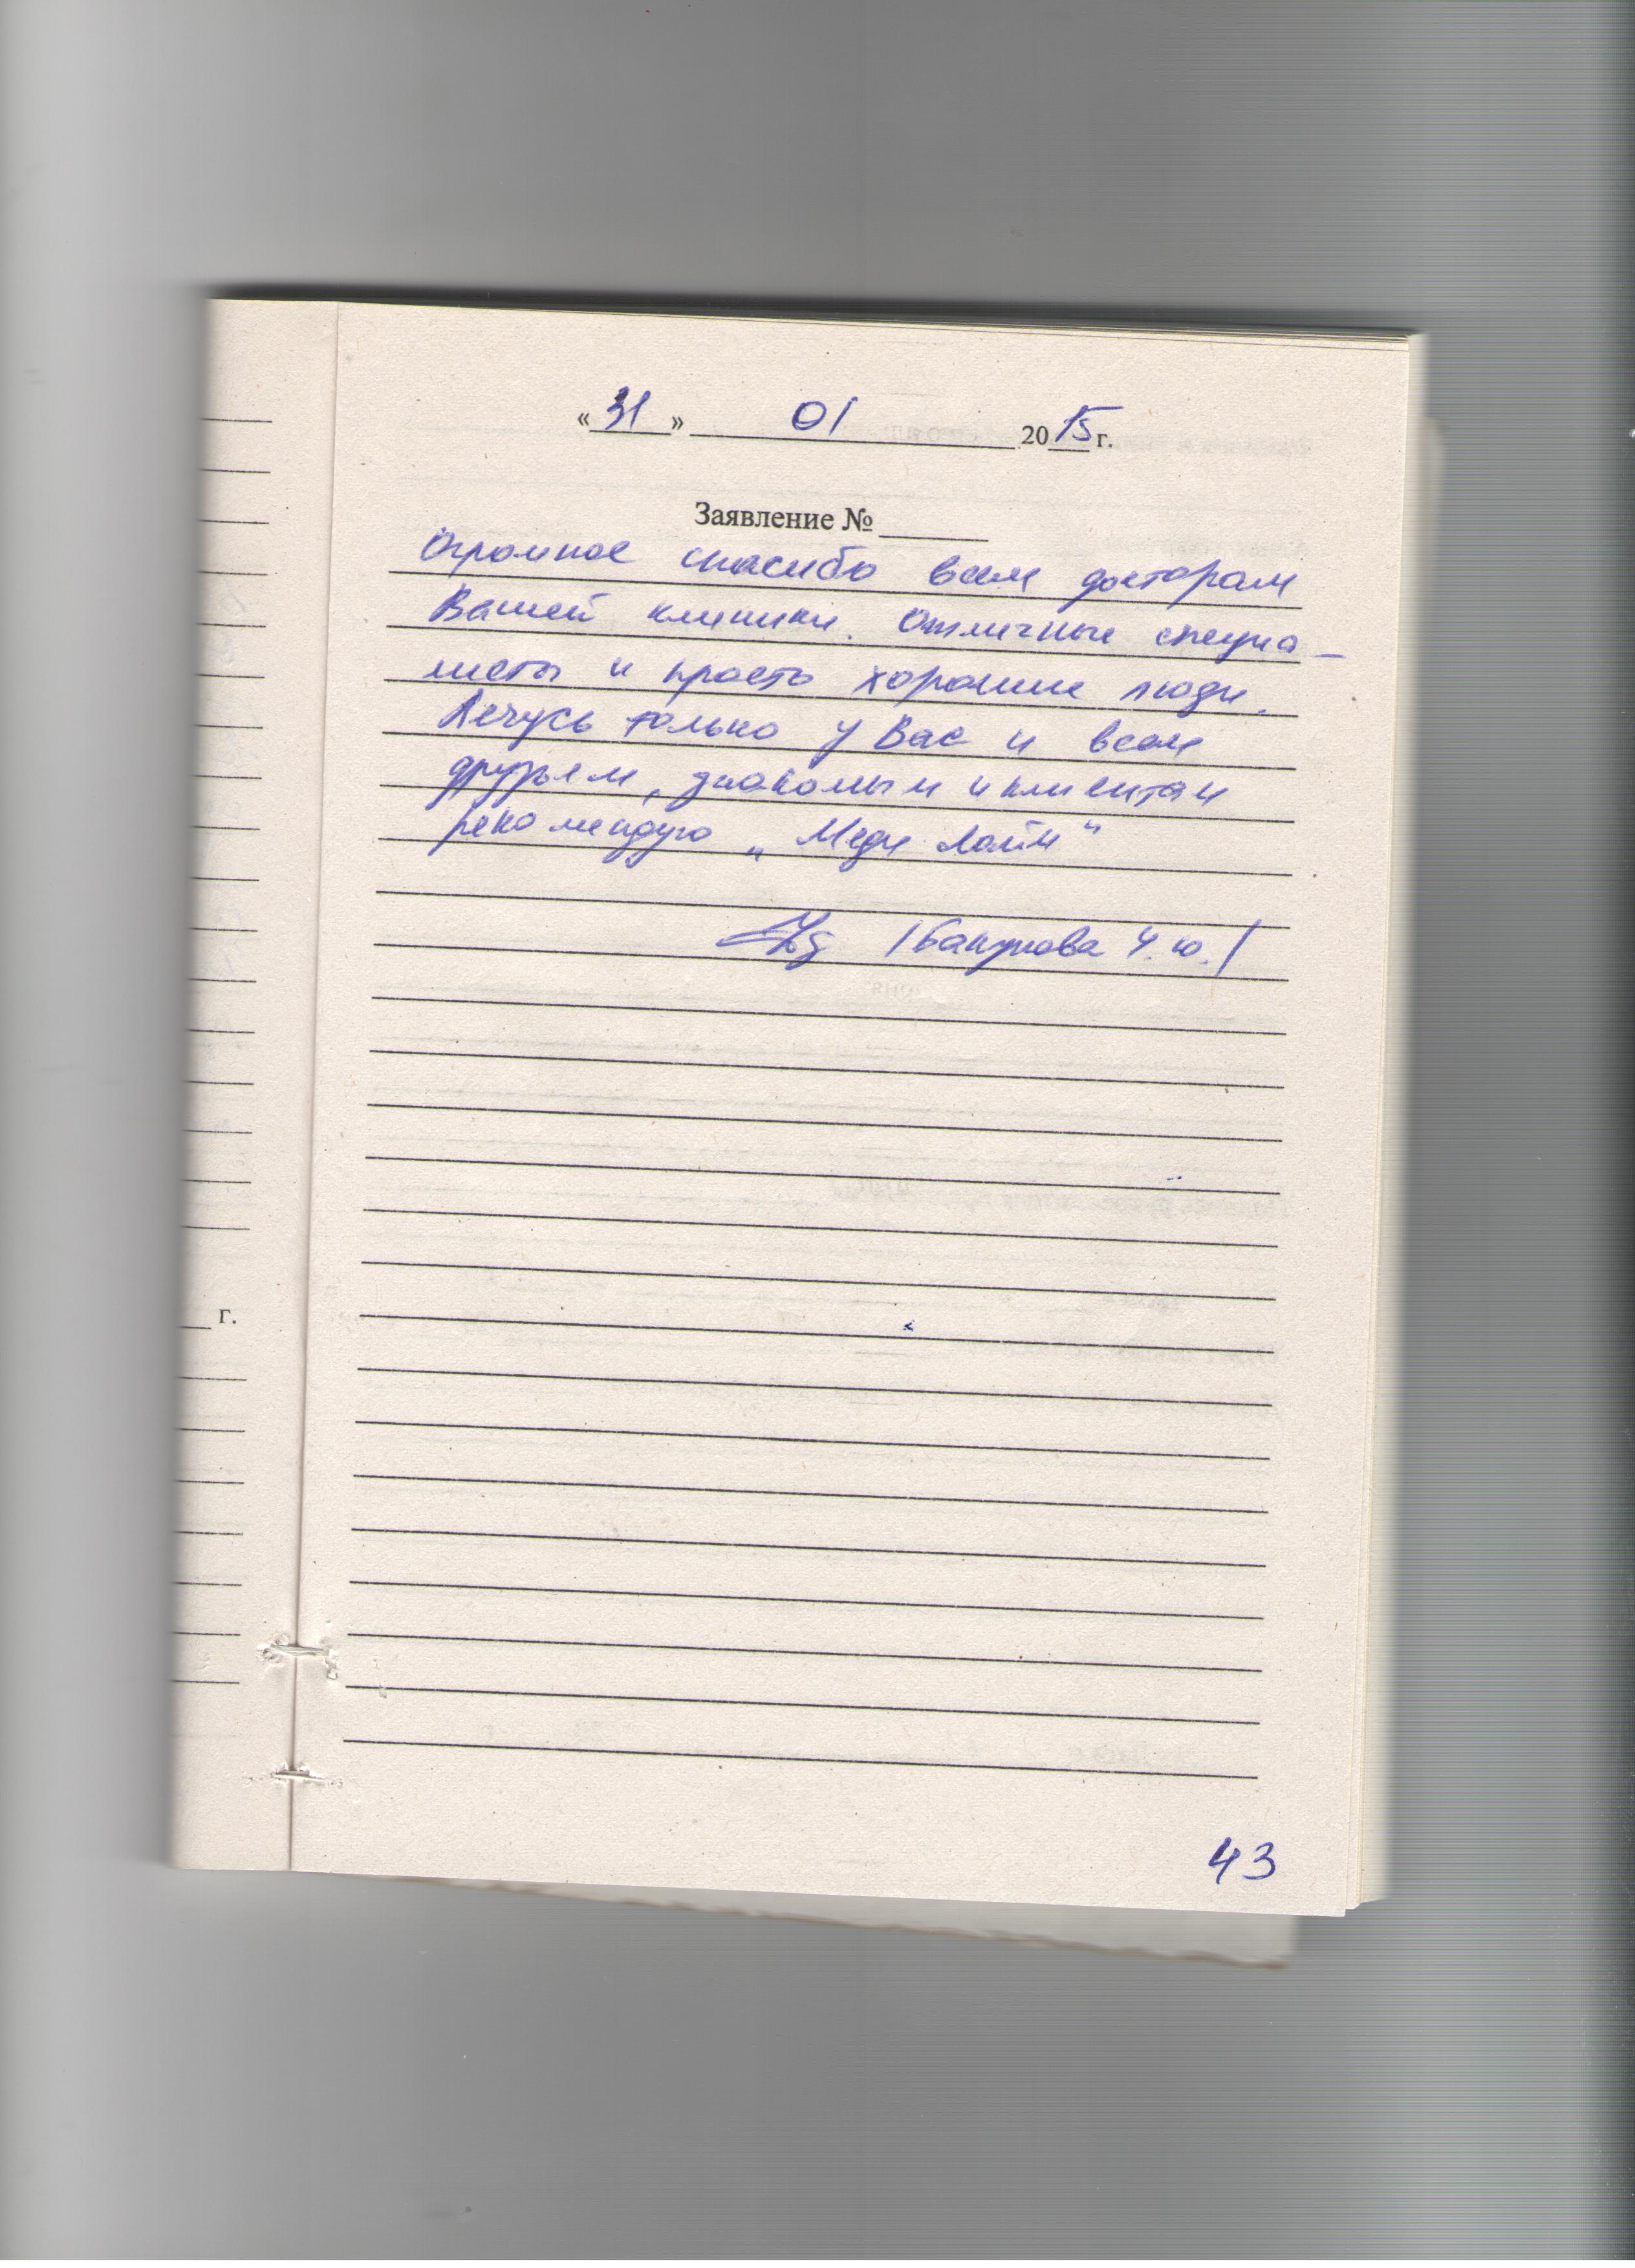 «31» 01 2015 г.
Заявление №
Огромное спасибо всем докторам
Вашей клиники. Отличные специа-
листы и просто хорошие люди.
Лечусь только у Вас и всем
друзьям, знакомым и клиентам
рекомендую „Меди Лайн“
/Бакунова Ч.Ю./
г.
43